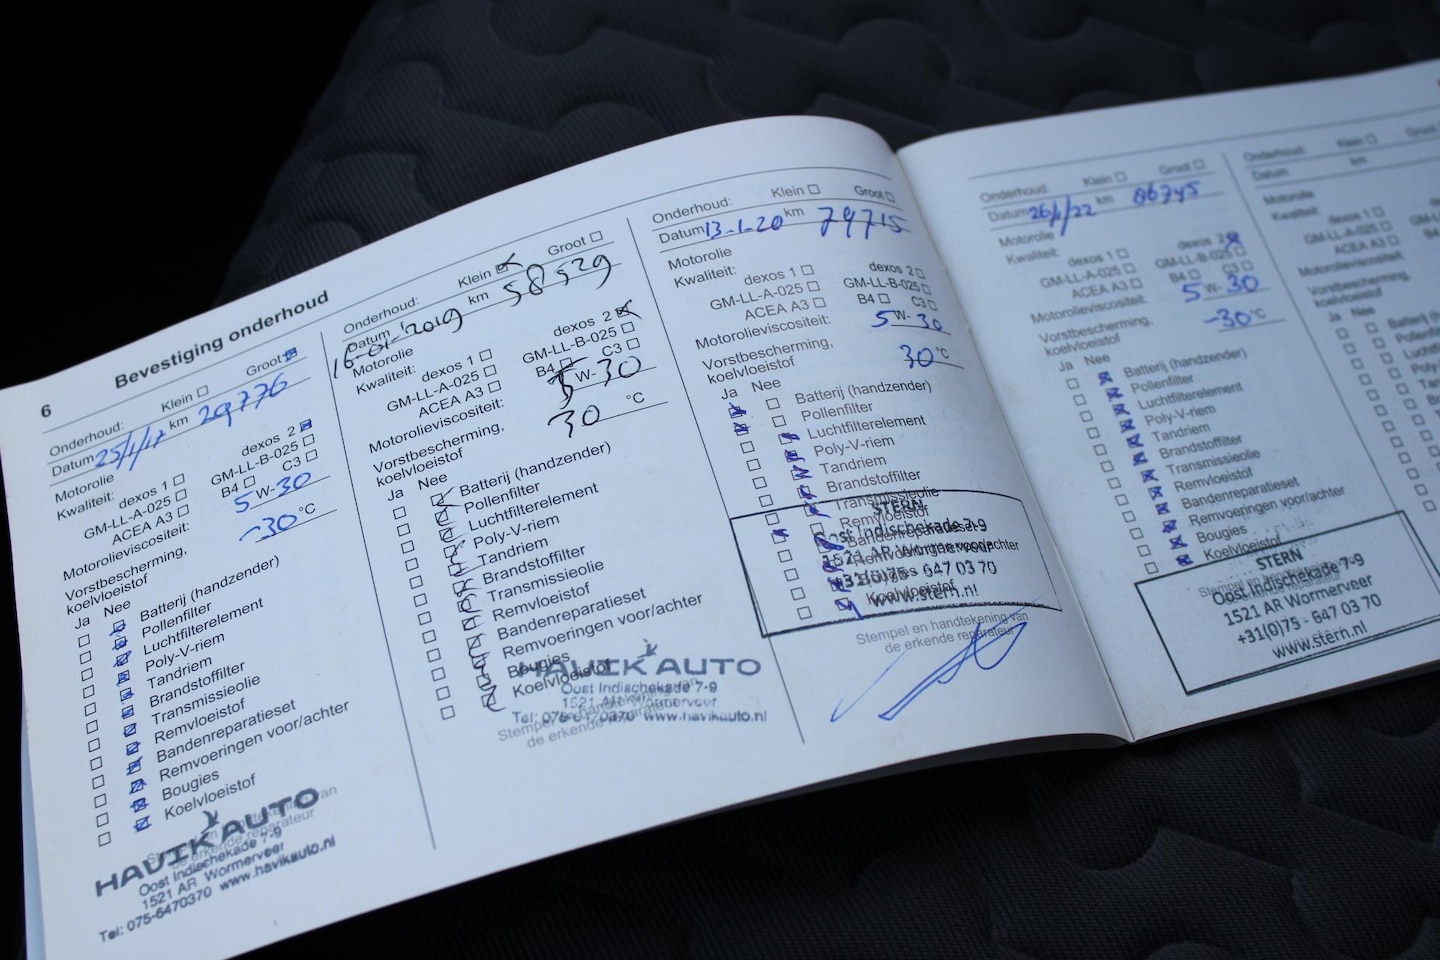 6
Bevestiging onderhoud
Onderhoud: Klein Groot
Datum 25/1/17 km 29776
Motorolie
Kwaliteit: dexos 1 dexos 2
GM-LL-A-025 GM-LL-B-025
ACEA A3 B4 C3
Motorolieviscositeit: 5 W-30
Vorstbescherming,
koelvloeistof -30 °C
Ja Nee
Batterij (handzender)
Pollenfilter
Luchtfilterelement
Poly-V-riem
Tandriem
Brandstoffilter
Transmissieolie
Remvloeistof
Bandenreparatieset
Remvoeringen voor/achter
Bougies
Koelvloeistof
HAVIK AUTO
Oost Indischekade 7-9
1521 AR Wormerveer
Tel: 075-6470370 www.havikauto.nl
Onderhoud: Klein Groot
Datum 16-01-2019 km 58529
Motorolie
Kwaliteit: dexos 1 dexos 2
GM-LL-A-025 GM-LL-B-025
ACEA A3 B4 C3
Motorolieviscositeit: 5 W-30
Vorstbescherming,
koelvloeistof 30 °C
Ja Nee
Batterij (handzender)
Pollenfilter
Luchtfilterelement
Poly-V-riem
Tandriem
Brandstoffilter
Transmissieolie
Remvloeistof
Bandenreparatieset
Remvoeringen voor/achter
Bougies
Koelvloeistof
HAVIK AUTO
Oost Indischekade 7-9
1521 AR Wormerveer
Tel: 075-6470370 www.havikauto.nl
Stempel en handtekening van
de erkende reparateur
Onderhoud: Klein Groot
Datum 13-1-20 km 79715
Motorolie
Kwaliteit: dexos 1 dexos 2
GM-LL-A-025 GM-LL-B-025
ACEA A3 B4 C3
Motorolieviscositeit: 5 W-30
Vorstbescherming,
koelvloeistof 30 °C
Ja Nee
Batterij (handzender)
Pollenfilter
Luchtfilterelement
Poly-V-riem
Tandriem
Brandstoffilter
Transmissieolie
Remvloeistof
Bandenreparatieset
Remvoeringen voor/achter
Bougies
Koelvloeistof
STERN
Oost Indischekade 7-9
1521 AR Wormerveer
+31(0)75 - 647 03 70
www.stern.nl
Stempel en handtekening van
de erkende reparateur
Onderhoud: Klein Groot
Datum 26/1/22 km 86745
Motorolie
Kwaliteit: dexos 1 dexos 2
GM-LL-A-025 GM-LL-B-025
ACEA A3 B4 C3
Motorolieviscositeit: 5 W-30
Vorstbescherming,
koelvloeistof -30 °C
Ja Nee
Batterij (handzender)
Pollenfilter
Luchtfilterelement
Poly-V-riem
Tandriem
Brandstoffilter
Transmissieolie
Remvloeistof
Bandenreparatieset
Remvoeringen voor/achter
Bougies
Koelvloeistof
STERN
Oost Indischekade 7-9
1521 AR Wormerveer
+31(0)75 - 647 03 70
www.stern.nl
Onderhoud: Klein
Datum km
Motorolie
Kwaliteit: dexos 1
GM-LL-A-025
ACEA A3
Motorolieviscositeit:
Vorstbescherming,
koelvloeistof
Ja Nee